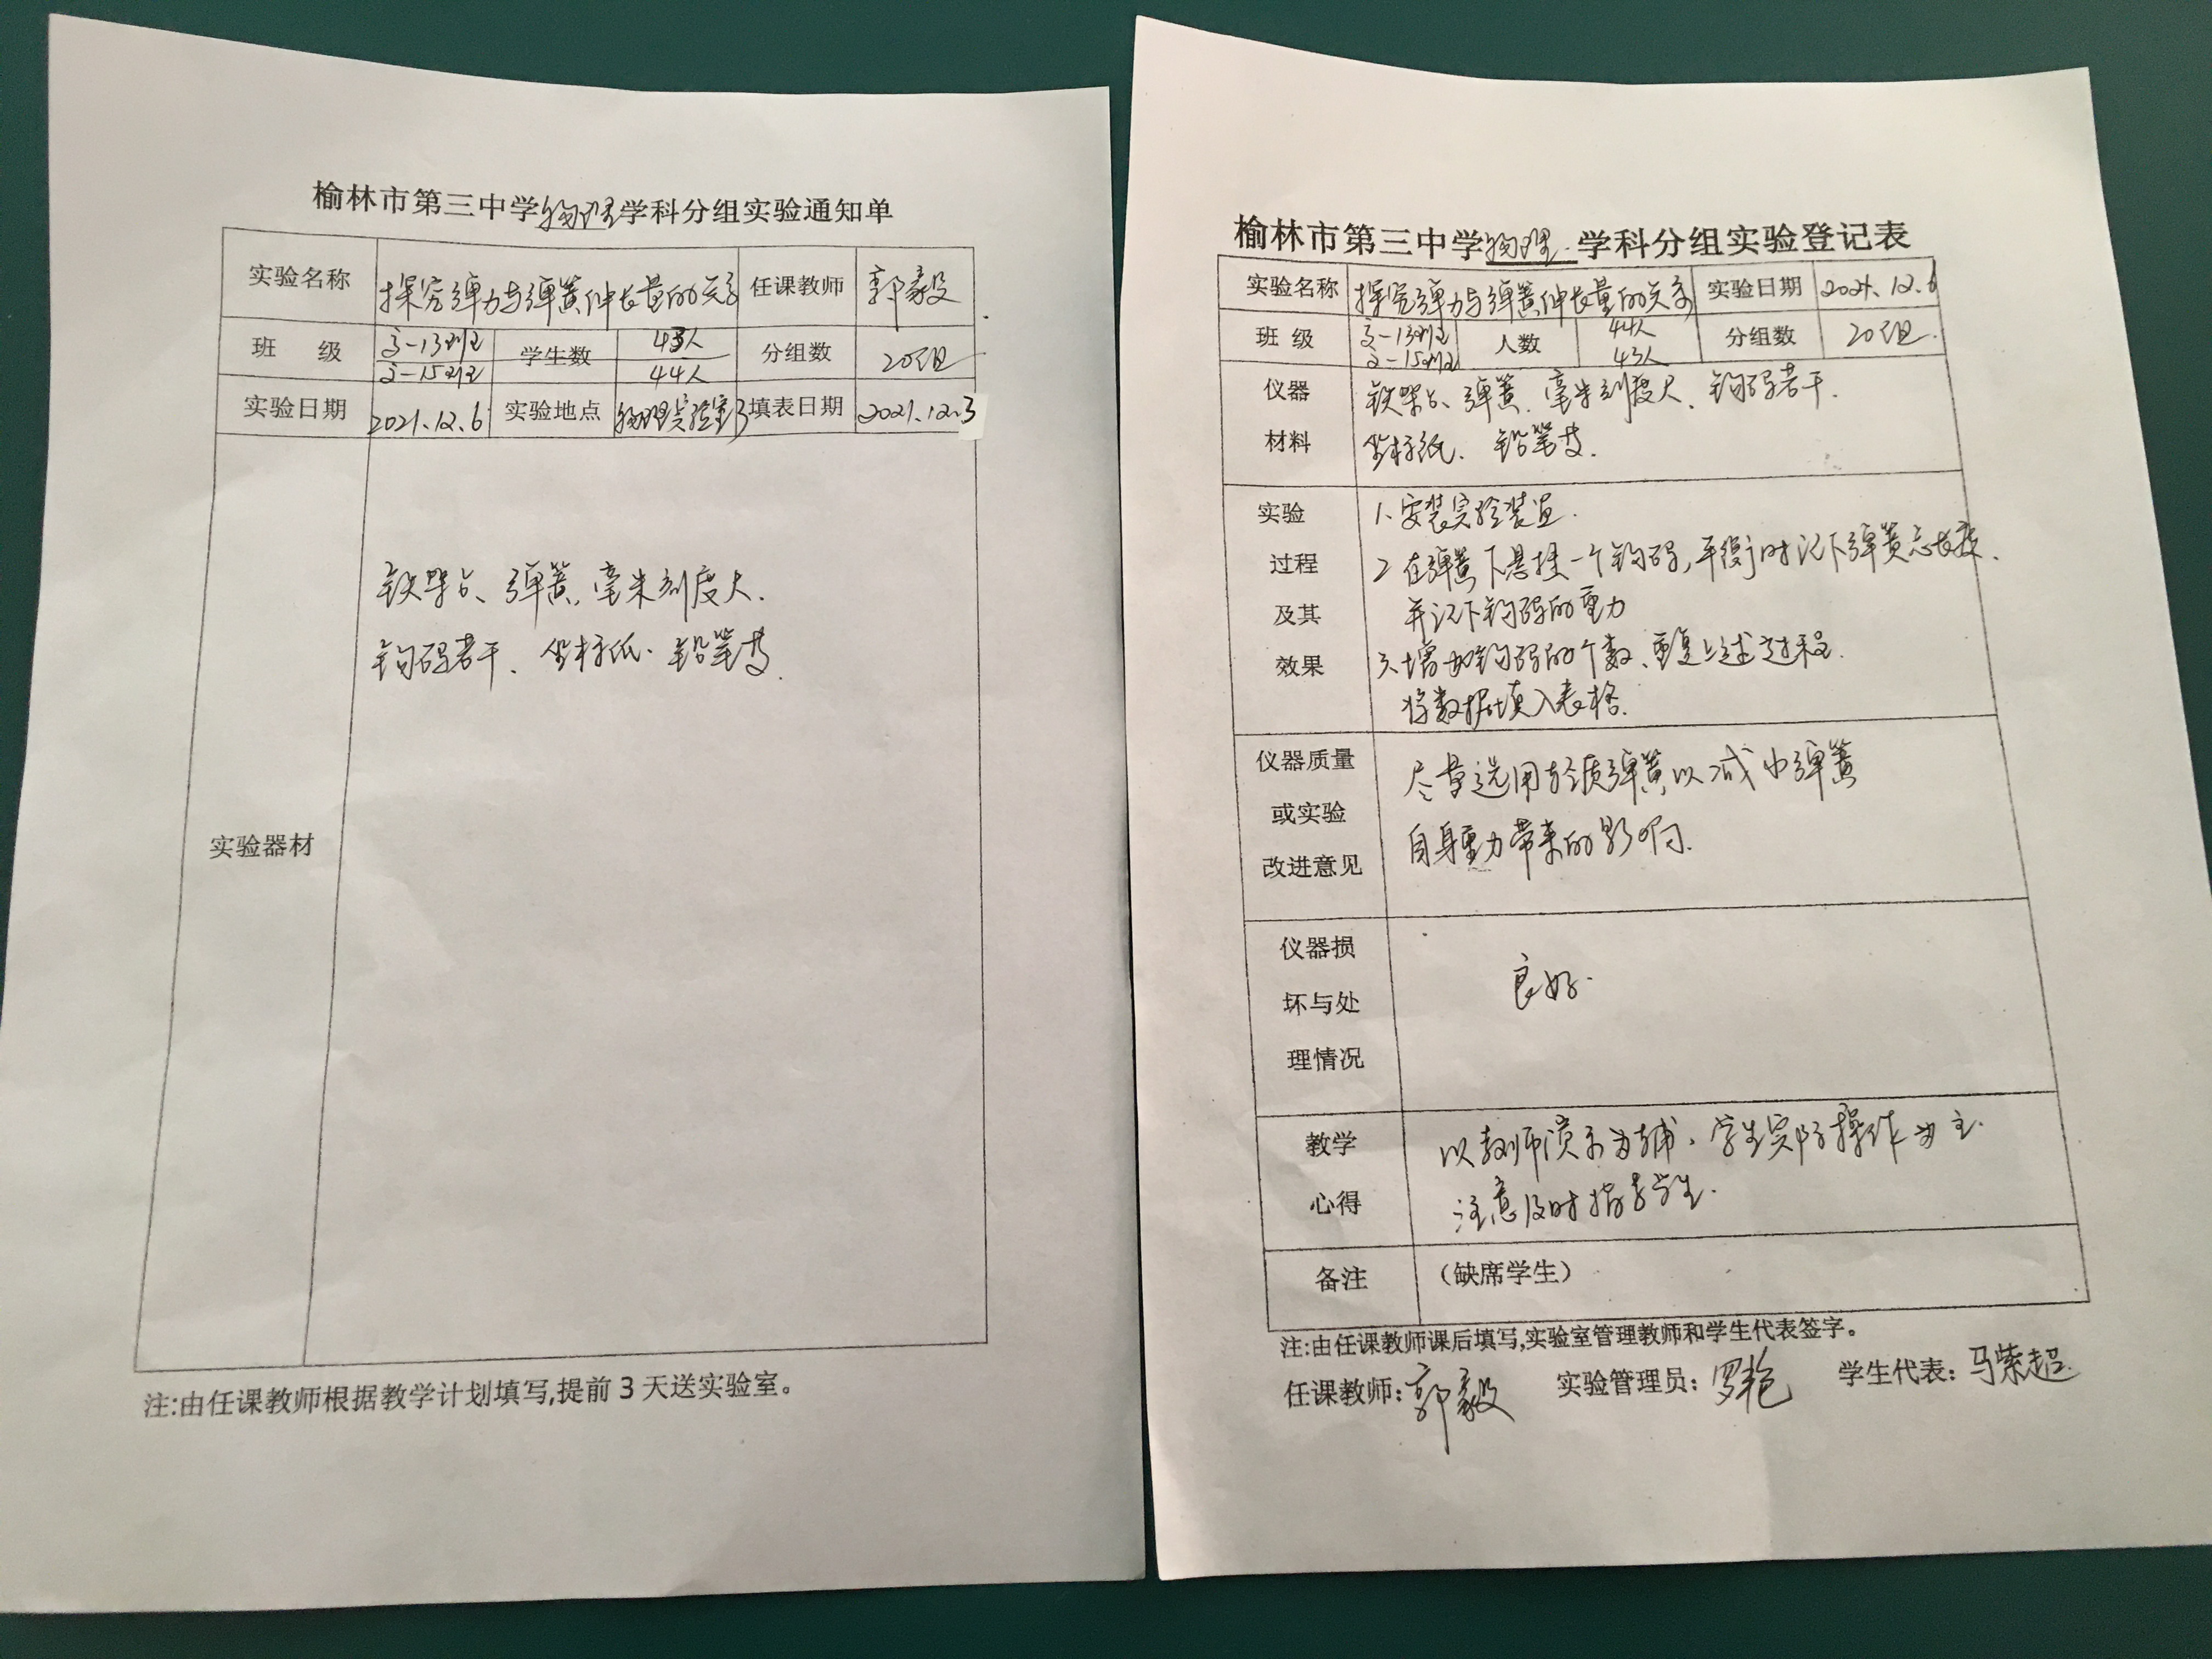 榆林市第三中学物理学科分组实验通知单
实验名称 探究弹力与弹簧伸长量的关系 任课教师 郭毅
班 级 高一13班 高一15班 学生数 43人 44人 分组数 20组
实验日期 2021.12.6 实验地点 物理实验室3 填表日期 2021.12.3
实验器材
铁架台、弹簧、毫米刻度尺、
钩码若干、坐标纸、铅笔等
注:由任课教师根据教学计划填写,提前3天送实验室。
榆林市第三中学物理学科分组实验登记表
实验名称 探究弹力与弹簧伸长量的关系 实验日期 2021.12.6
班 级 高一13班 高一15班 人数 44人 43人 分组数 20组
仪器 铁架台、弹簧、毫米刻度尺、钩码若干、
材料 坐标纸、铅笔等.
实验 1、安装实验装置.
过程 2 在弹簧下悬挂一个钩码,平衡时记下弹簧总长度、
及其 并记下钩码的重力
效果 3、增加钩码的个数、重复上述过程.
将数据填入表格.
仪器质量 尽量选用轻质弹簧以减小弹簧
或实验
改进意见 自身重力带来的影响.
仪器损
坏与处 良好.
理情况
教学 以教师演示为辅、学生实际操作为主.
心得 注意及时指导学生.
备注 （缺席学生）
注:由任课教师课后填写,实验室管理教师和学生代表签字。
任课教师:郭毅 实验管理员:罗艳 学生代表:马紫超